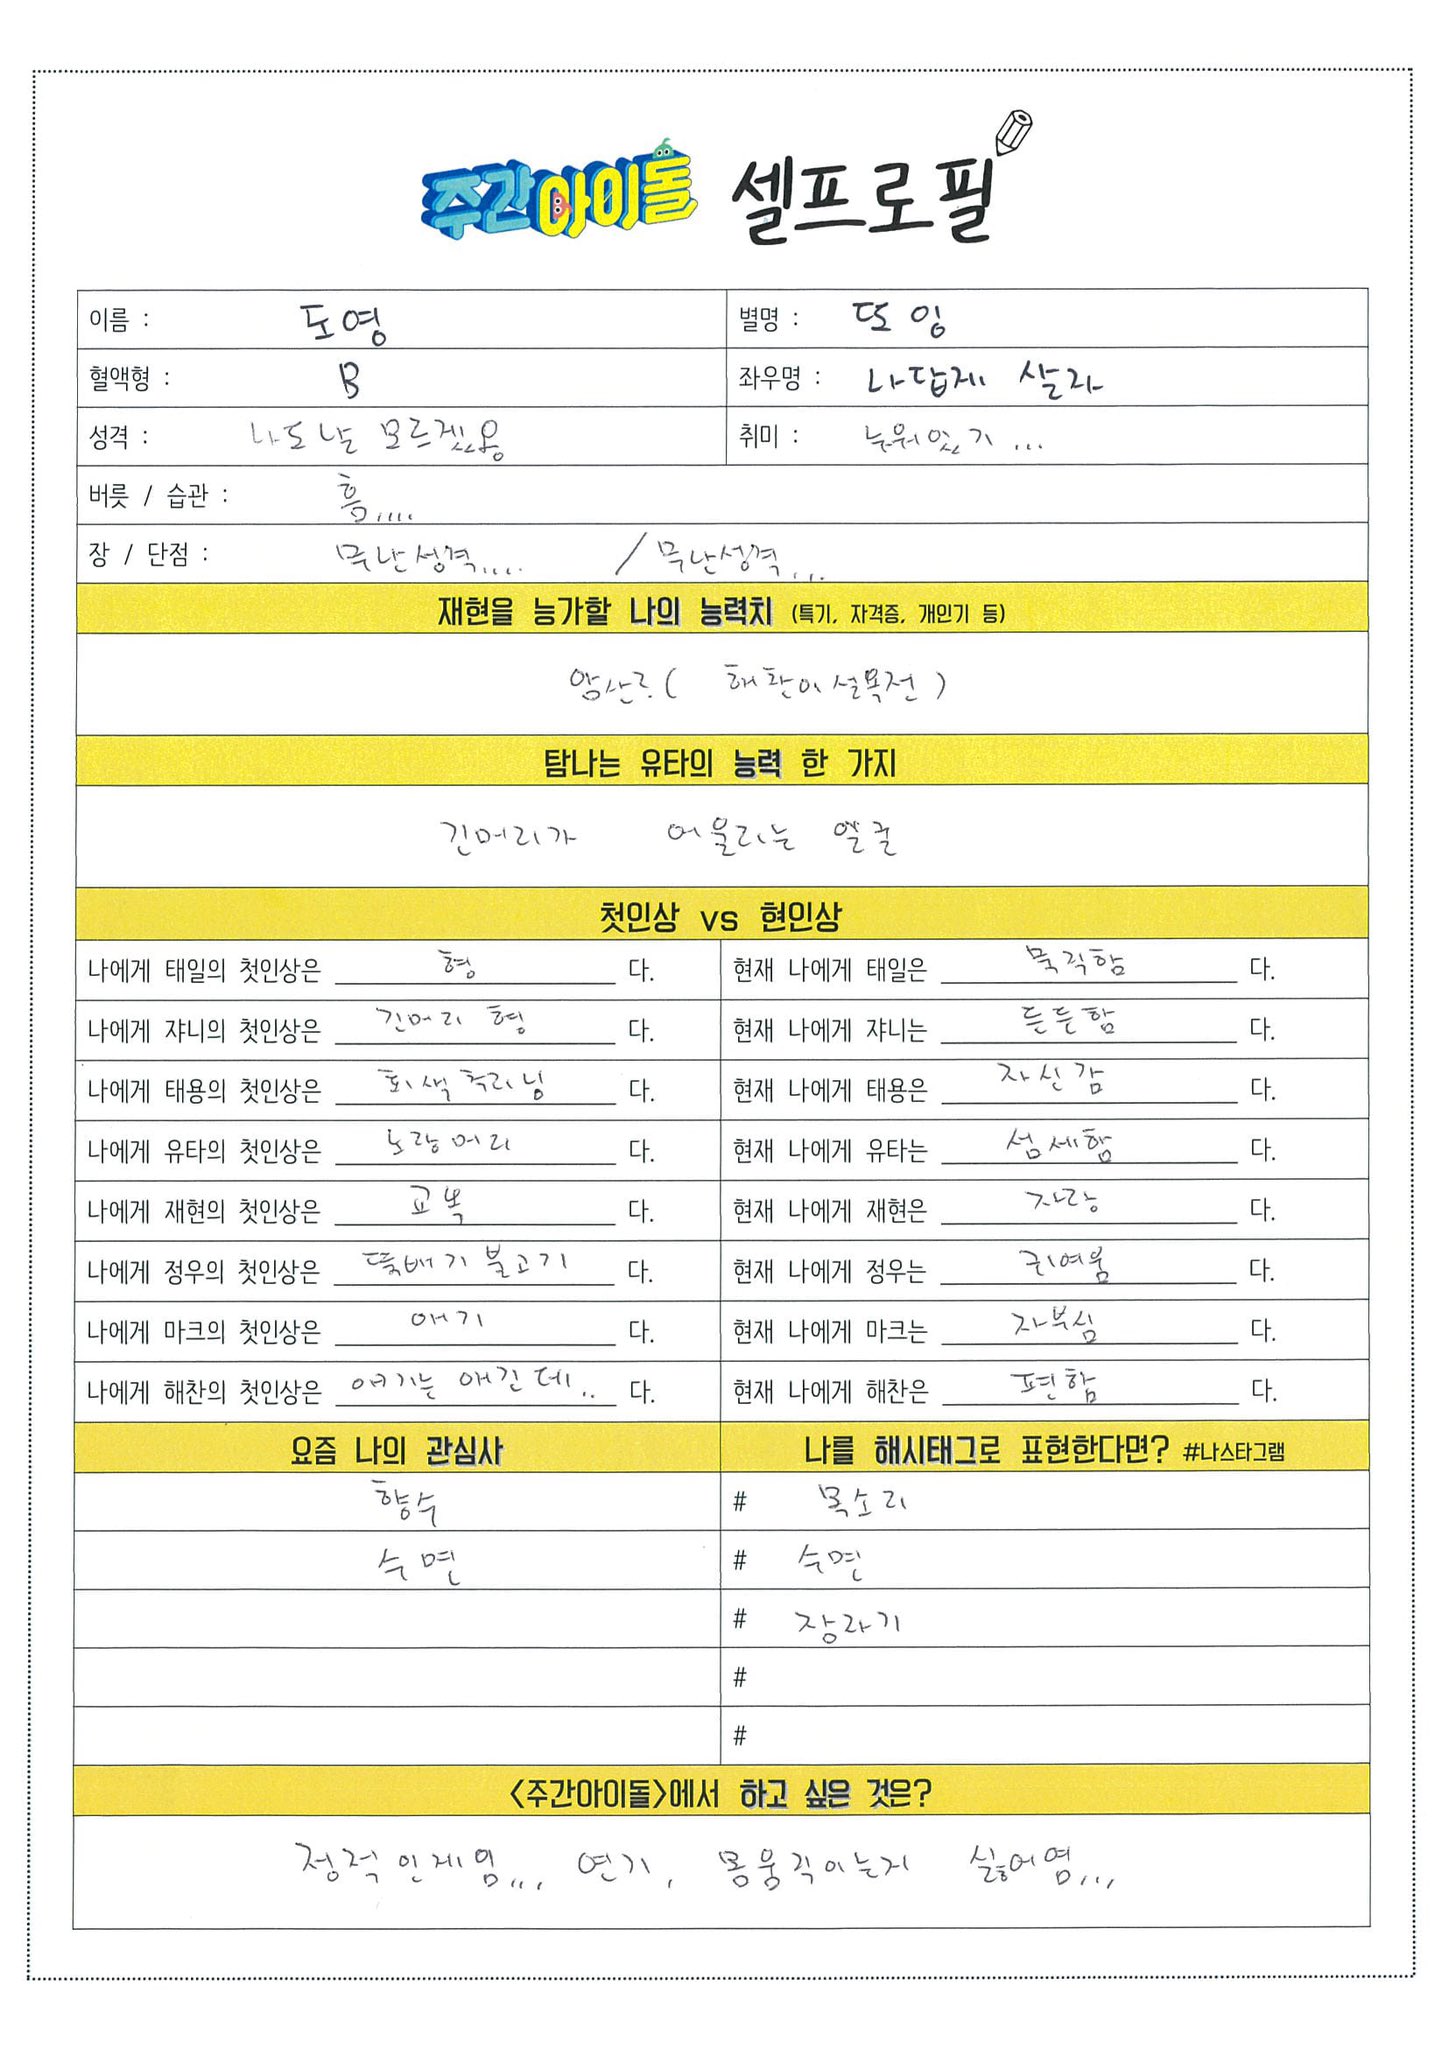 주간아이돌 셀프로필
이름 : 도영 별명 : 또잉
혈액형 : B 좌우명 : 나답게 살자
성격 : 나도 날 모르겠용 취미 : 누워있기 ...
버릇 / 습관 : 흠....
장 / 단점 : 무난성격.... / 무난성격...
재현을 능가할 나의 능력치 (특기, 자격증, 개인기 등)
암산? ( 해찬이설욕전 )
탐나는 유타의 능력 한 가지
긴머리가 어울리는 얼굴
첫인상 vs 현인상
나에게 태일의 첫인상은 형 다. 현재 나에게 태일은 묵직함 다.
나에게 쟈니의 첫인상은 긴머리 형 다. 현재 나에게 쟈니는 든든함 다.
나에게 태용의 첫인상은 회색츄리닝 다. 현재 나에게 태용은 자신감 다.
나에게 유타의 첫인상은 노랑머리 다. 현재 나에게 유타는 섬세함 다.
나에게 재현의 첫인상은 교복 다. 현재 나에게 재현은 자랑 다.
나에게 정우의 첫인상은 뚝배기불고기 다. 현재 나에게 정우는 귀여움 다.
나에게 마크의 첫인상은 애기 다. 현재 나에게 마크는 자부심 다.
나에게 해찬의 첫인상은 애기는 애긴데.. 다. 현재 나에게 해찬은 편함 다.
요즘 나의 관심사 나를 해시태그로 표현한다면? #나스타그램
향수 # 목소리
수면 # 수면
# 장라기
#
#
<주간아이돌>에서 하고 싶은 것은?
정적인게임,,, 연기, 몸움직이는거 싫어염,,,